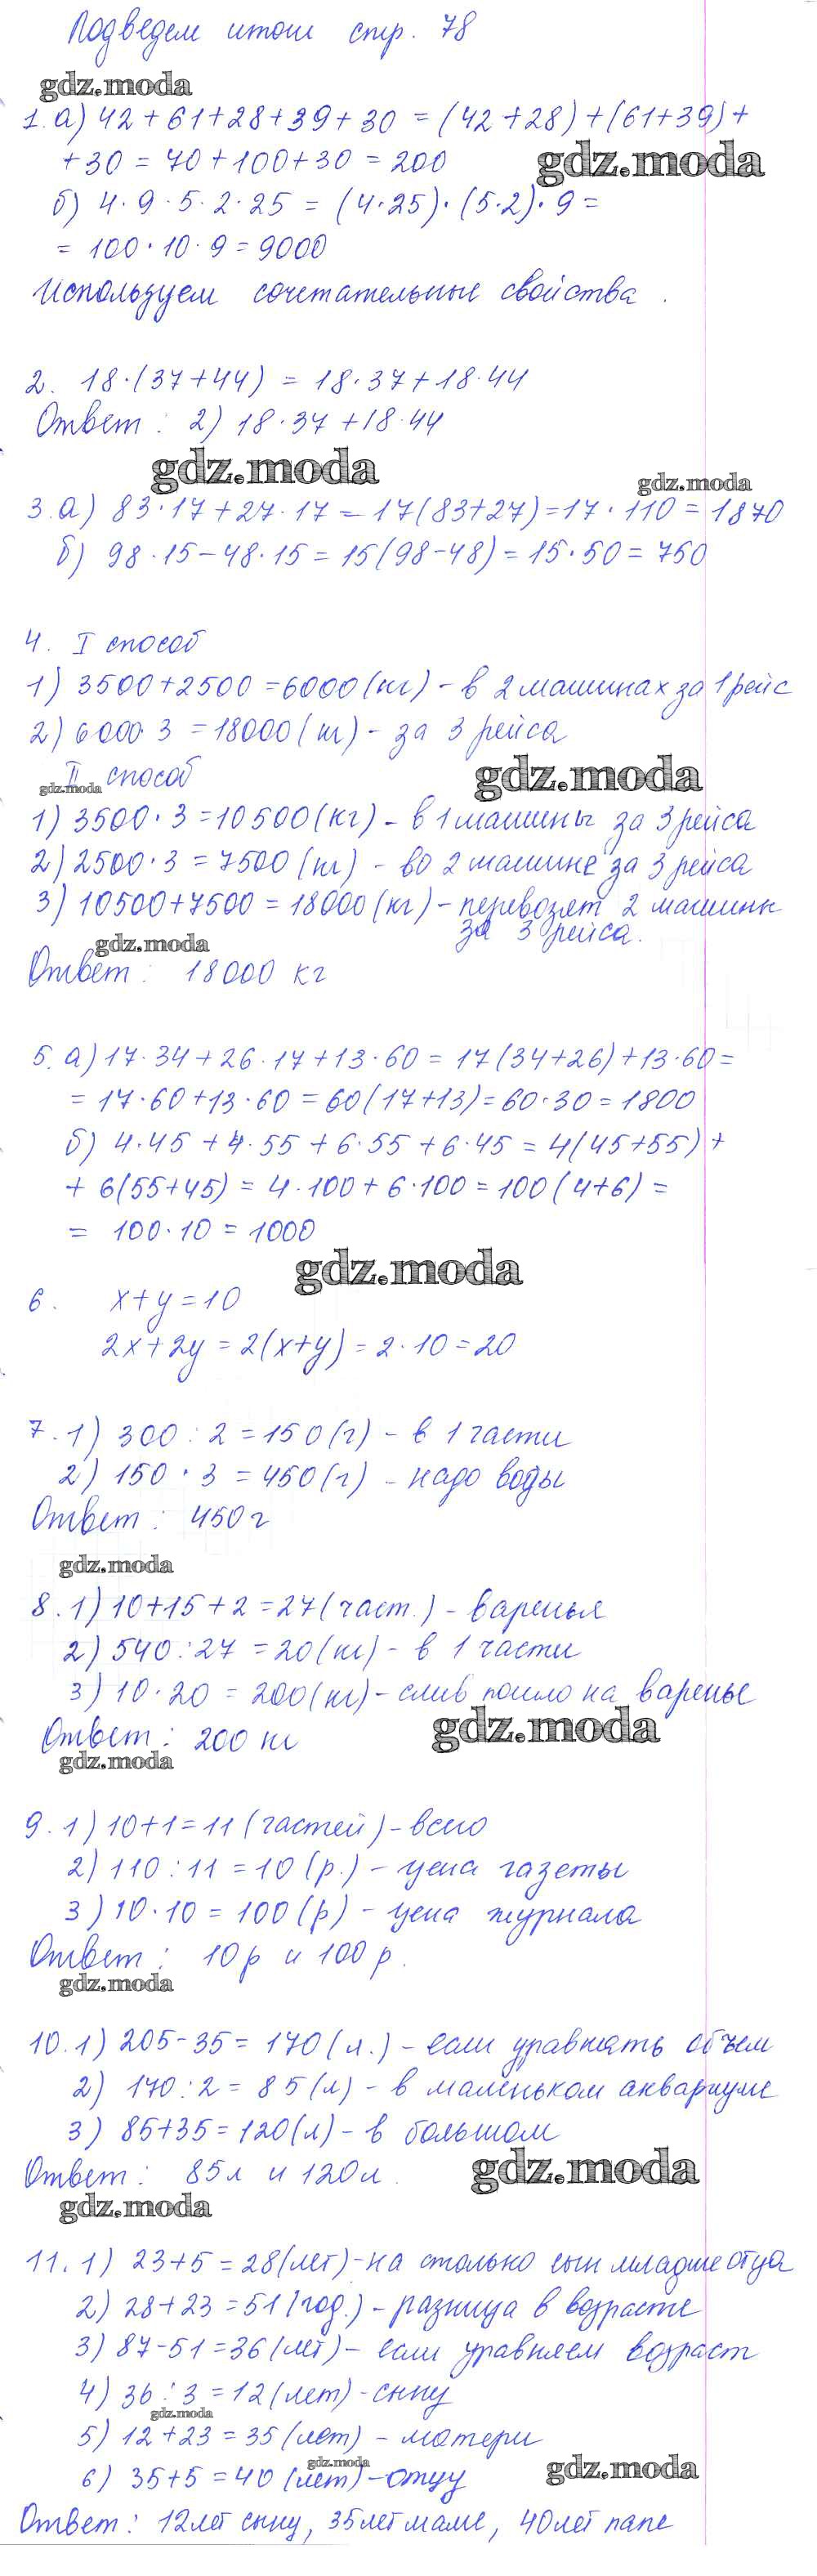 Подведем итоги стр. 78
gdz.moda
1. а) 42+61+28+39+30 = (42+28)+(61+39)+
+30 = 70+100+30 = 200
gdz.moda
б) 4·9·5·2·25 = (4·25)·(5·2)·9 =
= 100·10·9 = 9000
Используем сочетательные свойства.
2. 18·(37+44) = 18·37+18·44
Ответ: 2) 18·37+18·44
gdz.moda
gdz.moda
3. а) 83·17+27·17 = 17(83+27)=17·110=1870
б) 98·15-48·15 = 15(98-48) = 15·50 = 750
4. I способ
1) 3500+2500 =6000(кг) - в 2 машинах за 1 рейс
2) 6000·3 =18000(кг) - за 3 рейса
II способ
gdz.moda
gdz.moda
1) 3500·3=10500(кг) - в 1 машины за 3 рейса
2) 2500·3 = 7500 (кг) - во 2 машине за 3 рейса
3) 10500+7500 = 18000(кг) - перевозят 2 машины
за 3 рейса.
gdz.moda
Ответ: 18000 кг
5. а) 17·34+26·17+13·60 = 17(34+26)+13·60=
= 17·60+13·60 = 60(17+13)=60·30=1800
б) 4·45 + 4·55 + 6·55 + 6·45 = 4(45+55) +
+ 6(55+45) = 4·100+6·100 = 100(4+6) =
= 100·10 = 1000
gdz.moda
6. x+y=10
2x+2y = 2(x+y) = 2·10=20
7. 1) 300:2=150(г) - в 1 части
2) 150·3 = 450(г) - надо воды
Ответ: 450г
gdz.moda
8. 1) 10+15+2=27(част.) - варенья
2) 540:27 =20(кг) - в 1 части
3) 10·20 = 200(кг) - слив пошло на варенье
Ответ: 200 кг
gdz.moda
gdz.moda
9. 1) 10+1=11(частей) - всего
2) 110:11 = 10 (р.) - цена газеты
3) 10·10 = 100(р) - цена журнала
Ответ: 10р и 100р.
gdz.moda
10. 1) 205-35= 170(л.) - если уравнять объем
2) 170:2= 85(л) - в маленьком аквариуме
3) 85+35=120(л) - в большом
Ответ: 85л и 120л.
gdz.moda
gdz.moda
11. 1) 23+5=28(лет) - на столько сын младше отца
2) 28+23=51(год.) - разница в возрасте
3) 87-51=36(лет) - если уравняем возраст
4) 36:3=12(лет) - сыну
gdz.moda
5) 12+23=35(лет) - матери
gdz.moda
gdz.moda
6) 35+5=40(лет) - отцу
Ответ: 12лет сыну, 35лет маме, 40лет папе